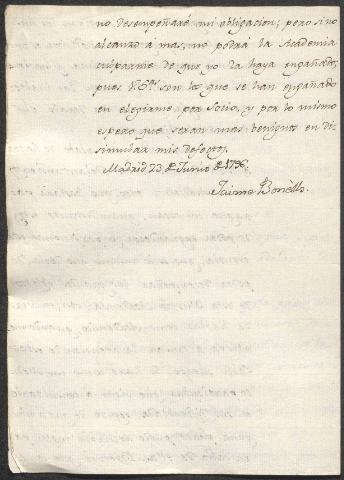 no desempeñaré mi obligacion; pero si no
alcanzo a mas, no podrá la Academia
culparme de que yo la haya engañado;
pues V.Ss. son los que se han engañado
en elegirme por Socio, y por lo mismo
espero que seran mas benignos en di-
simular mis defectos.
Madrid 23 de Junio de 1796.
Jaime Bonells.